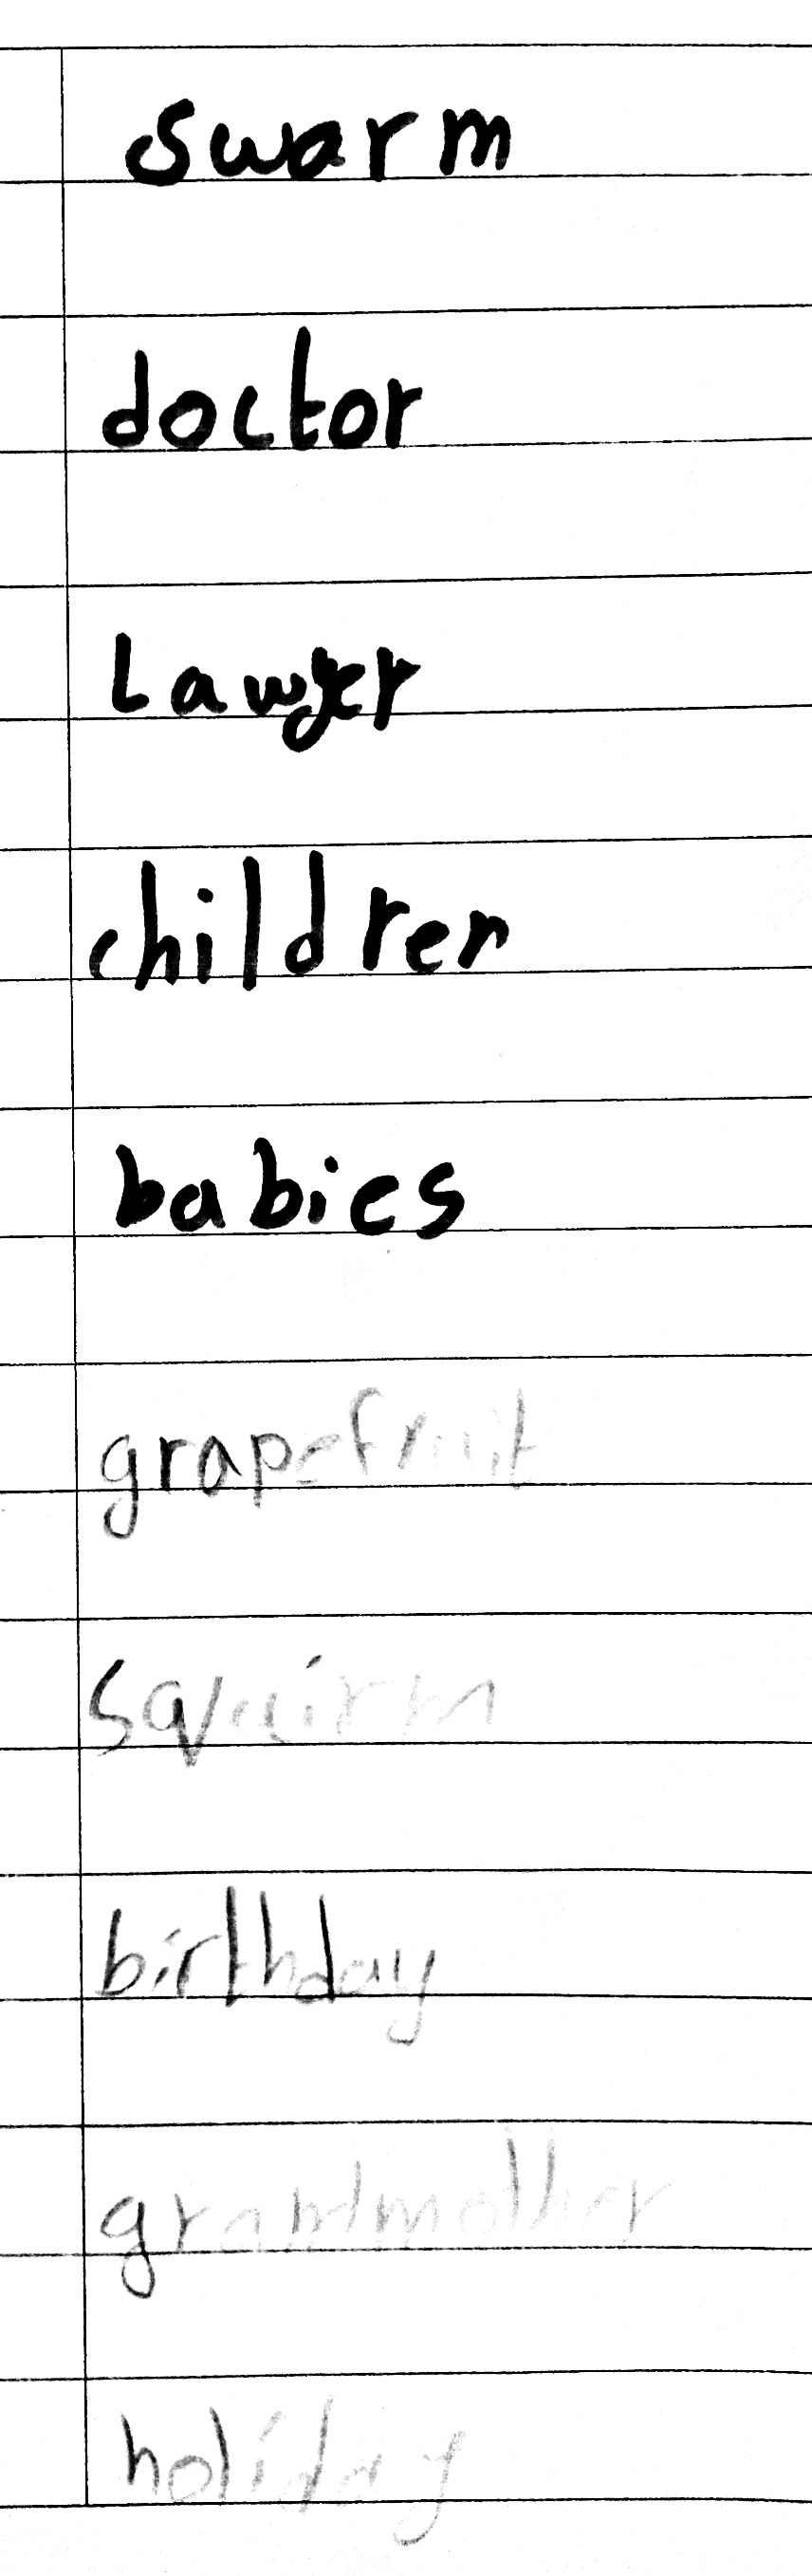 swarm
doctor
Lawyer
children
babies
grapefruit
squirm
birthday
grandmother
holiday